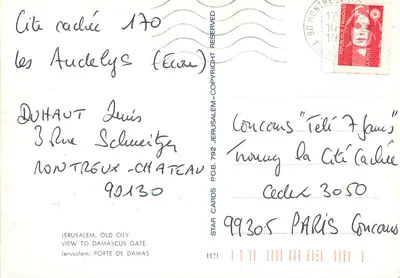 Cité cachée 170
Les Andelys (Eure)
DUHAUT Denis
3 Rue Schweitzer
MONTREUX-CHATEAU
90130
JERUSALEM, OLD CITY
VIEW TO DAMASCUS GATE
Jerusalem, PORTE DE DAMAS
STAR CARDS P.O.B. 792 JERUSALEM-COPYRIGHT RESERVED
1121
Concours "Télé 7 Jours"
la Cité Cachée
Cedex 3050
99305 PARIS Concours